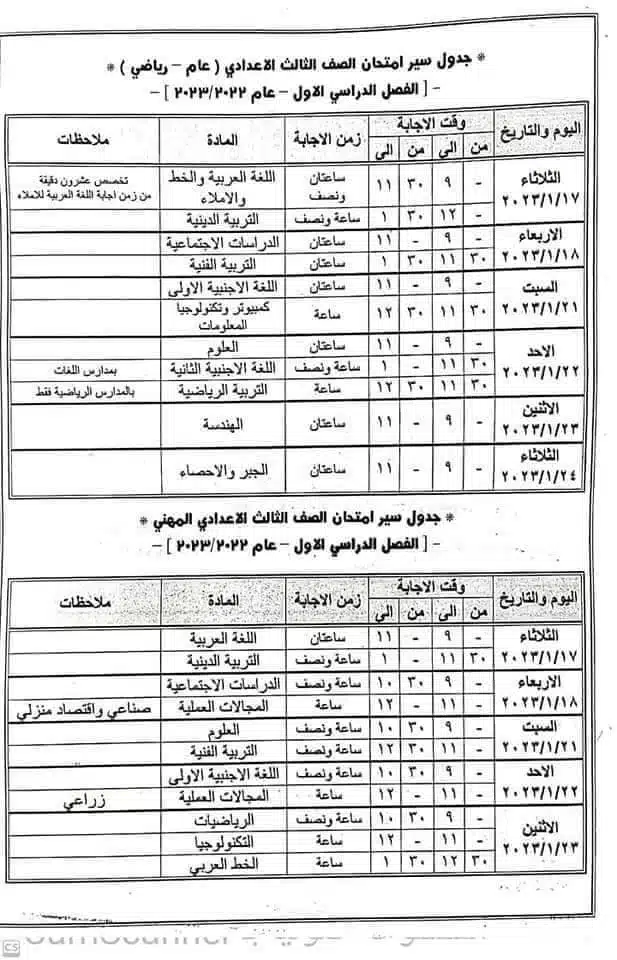 * جدول سير امتحان الصف الثالث الاعدادي ( عام – رياضي ) *
– [ الفصل الدراسي الاول – عام ٢٠٢٣/٢٠٢٢ ] –
اليوم والتاريخ وقت الاجابة زمن الاجابة المادة ملاحظات
من الى من الى
الثلاثاء ٢٠٢٣/١/١٧ - ٩ ٣٠ ١١ ساعتان ونصف اللغة العربية والخط والاملاء تخصص عشرون دقيقة من زمن اجابة اللغة العربية للاملاء
- ١٢ ٣٠ ١ ساعة ونصف التربية الدينية
الاربعاء ٢٠٢٣/١/١٨ - ٩ - ١١ ساعتان الدراسات الاجتماعية
٣٠ ١١ ٣٠ ١ ساعتان التربية الفنية
السبت ٢٠٢٣/١/٢١ - ٩ - ١١ ساعتان اللغة الاجنبية الاولى
٣٠ ١١ ٣٠ ١٢ ساعة كمبيوتر وتكنولوجيا المعلومات
الاحد ٢٠٢٣/١/٢٢ - ٩ - ١١ ساعتان العلوم
٣٠ ١١ - ١ ساعة ونصف اللغة الاجنبية الثانية بمدارس اللغات
٣٠ ١١ ٣٠ ١٢ ساعة التربية الرياضية بالمدارس الرياضية فقط
الاثنين ٢٠٢٣/١/٢٣ - ٩ - ١١ ساعتان الهندسة
الثلاثاء ٢٠٢٣/١/٢٤ - ٩ - ١١ ساعتان الجبر والاحصاء
* جدول سير امتحان الصف الثالث الاعدادي المهني *
– [ الفصل الدراسي الاول – عام ٢٠٢٣/٢٠٢٢ ] –
اليوم والتاريخ وقت الاجابة زمن الاجابة المادة ملاحظات
من الى من الى
الثلاثاء ٢٠٢٣/١/١٧ - ٩ - ١١ ساعتان اللغة العربية
٣٠ ١١ - ١ ساعة ونصف التربية الدينية
الاربعاء ٢٠٢٣/١/١٨ - ٩ ٣٠ ١٠ ساعة ونصف الدراسات الاجتماعية
- ١١ - ١٢ ساعة المجالات العملية صناعي واقتصاد منزلي
السبت ٢٠٢٣/١/٢١ - ٩ ٣٠ ١٠ ساعة ونصف العلوم
- ١١ ٣٠ ١٢ ساعة ونصف التربية الفنية
الاحد ٢٠٢٣/١/٢٢ - ٩ ٣٠ ١٠ ساعة ونصف اللغة الاجنبية الاولى
- ١١ - ١٢ ساعة المجالات العملية زراعي
الاثنين ٢٠٢٣/١/٢٣ - ٩ ٣٠ ١٠ ساعة ونصف الرياضيات
- ١١ - ١٢ ساعة التكنولوجيا
٣٠ ١٢ ٣٠ ١ ساعة الخط العربي
CS